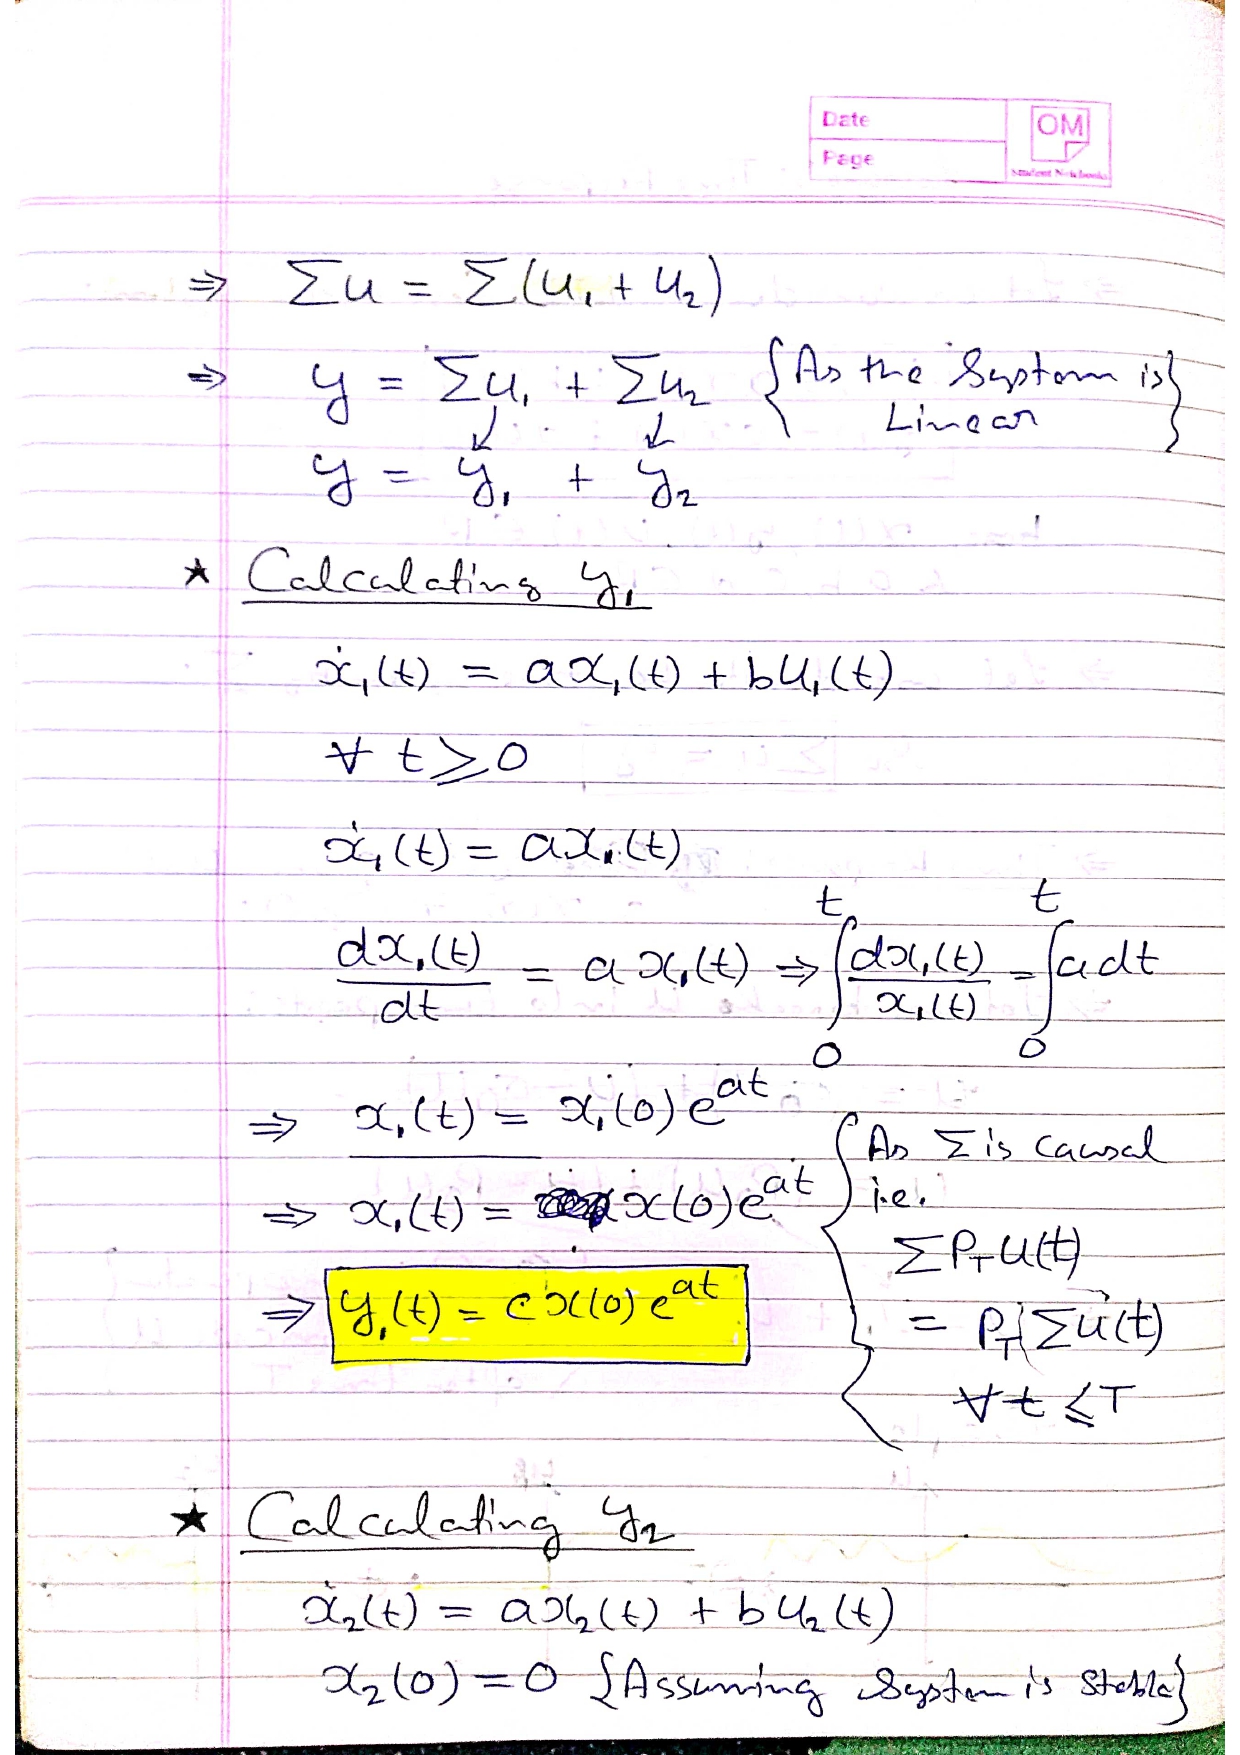 Date
OM
Page
Student Notebooks
⇒ Σu = Σ(u₁ + u₂)
⇒ y = Σu₁ + Σu₂ {As the System is Linear}
y = y₁ + y₂
★ Calculating y₁
ẋ₁(t) = ax₁(t) + bu₁(t)
∀ t ≥ 0
ẋ₁(t) = ax₁(t)
dx₁(t)/dt = a x₁(t) ⇒ ∫₀ᵗ dx₁(t)/x₁(t) = ∫₀ᵗ a dt
⇒ x₁(t) = x₁(0) e^at
⇒ x₁(t) = x(0) e^at
⇒ y₁(t) = c x(0) e^at
{As Σ is causal
i.e.
Σ P_T u(t)
= P_T Σu(t)
∀ t ≤ T
★ Calculating y₂
ẋ₂(t) = ax₂(t) + bu₂(t)
x₂(0) = 0 {Assuming System is Stable}